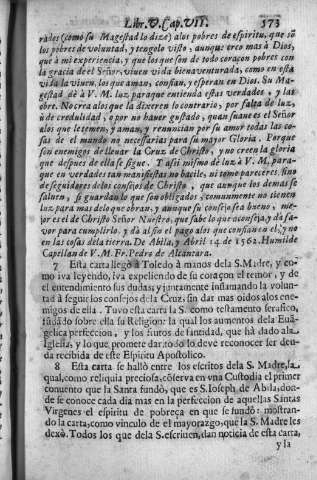 Libr. V. Cap. VII. 573
rades (como su Magestad lo dize) alos pobres de espiritu, que sõ
los pobres de voluntad, y tengolo visto, aunque creo mas à Dios,
que à mi experiencia, y que los que son de todo coraçon pobres con
la gracia de el Señor, viuen vida bienaventurada, como en està
vida la viuen, los que aman, confian, y esperan en Dios. Su Ma-
gestad dè à V. M. luz, paraque entienda estas verdades, y las
obre. No crea alos que la dixeren lo contrario, por falta de luz,
ù de credulidad, o por no hauer gustado, quan suaue es el Señor
alos que le temen, y aman, y renuncian por su amor todas las co-
sas de el mundo no necessarias para su mayor Gloria. Porque
son enemigos de lleuar la Cruz de Christo, y no creen la gloria
que despues de ella se sigue. T assi mismo dè luz à V. M. para-
que en verdades tan manifiestas no bacile, ni tome pareceres, sino
de seguidores delos consejos de Christo, que aunque los demas se
saluen, si guardan lo que son obligados, comunmente no tienen
luz para mas delo que obran, y aunque su consejo sea bueno, me-
jor es el de Christo Señor Nuestro, que sabe lo que aconseja, y da fa-
vor para cumplirlo, y dà al fin el pago alos que confian en el, y no
en las cosas dela tierra. De Abila, y Abril 14. de 1562. Humilde
Capellan de V. M. Fr. Pedro de Alcantara.
7 Esta carta llegò à Toledo à manos dela S. Madre, y co-
mo iva leyendo, iva expeliendo de su coraçon el temor, y de
el entendimiento sus dudas; y juntamente inflamando la volun-
tad à seguir los consejos dela Cruz, sin dar mas oidos alos ene-
migos de ella. Tuvo esta carta la S. como testamento serafico,
fũdãdo sobre ella su Religion: la qual los aumentos dela Euã-
gelica perfeccion, y los frutos de santidad, que hà dado ala
Iglesia, y lo que promete dar, todo lo deve reconocer ser deu-
da recibida de este Espiritu Apostolico.
8 Esta carta se hallò entre los escritos dela S. Madre, la
qual, como reliquia preciosa, cõserva en vna Custodia el primer
convento que la Santa fundò, que es S. Ioseph de Abila, don-
de se conoce cada dia mas en la perfeccion de aquellas Sãntas
Virgenes el espiritu de pobreça en que se fundò: mostran-
do la carta, como vinculo de el mayorazgo, que la S. Madre les
dexò. Todos los que dela S. escriuen, dan noticia de esta carta,
y la